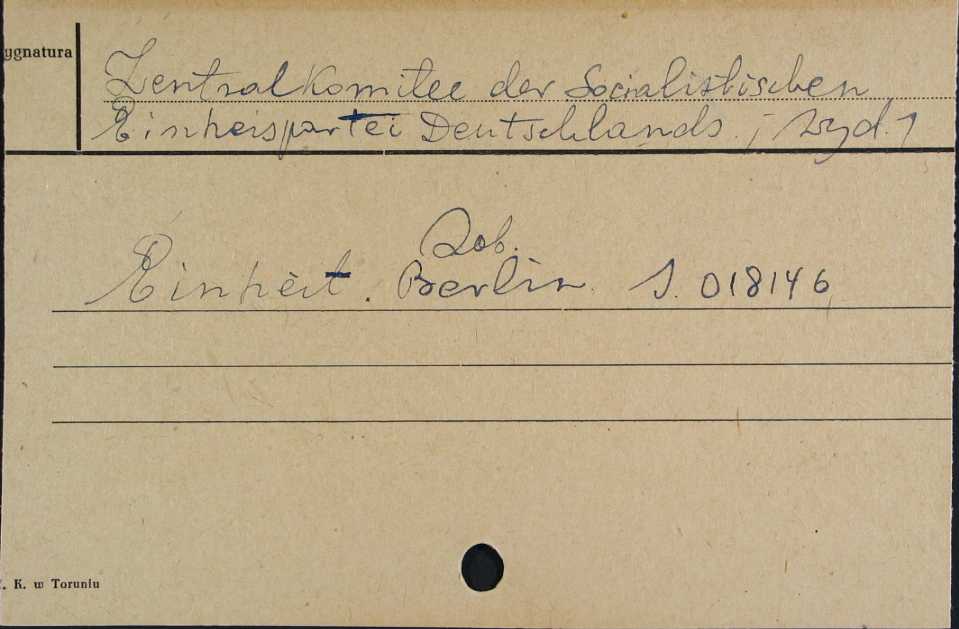 ygnatura
Zentralkomitee der Socialistischen
Einheispartei Deutschlands. /-wyd./
Zob.
Einheit. Berlin. S. 018146
. K. w Toruniu